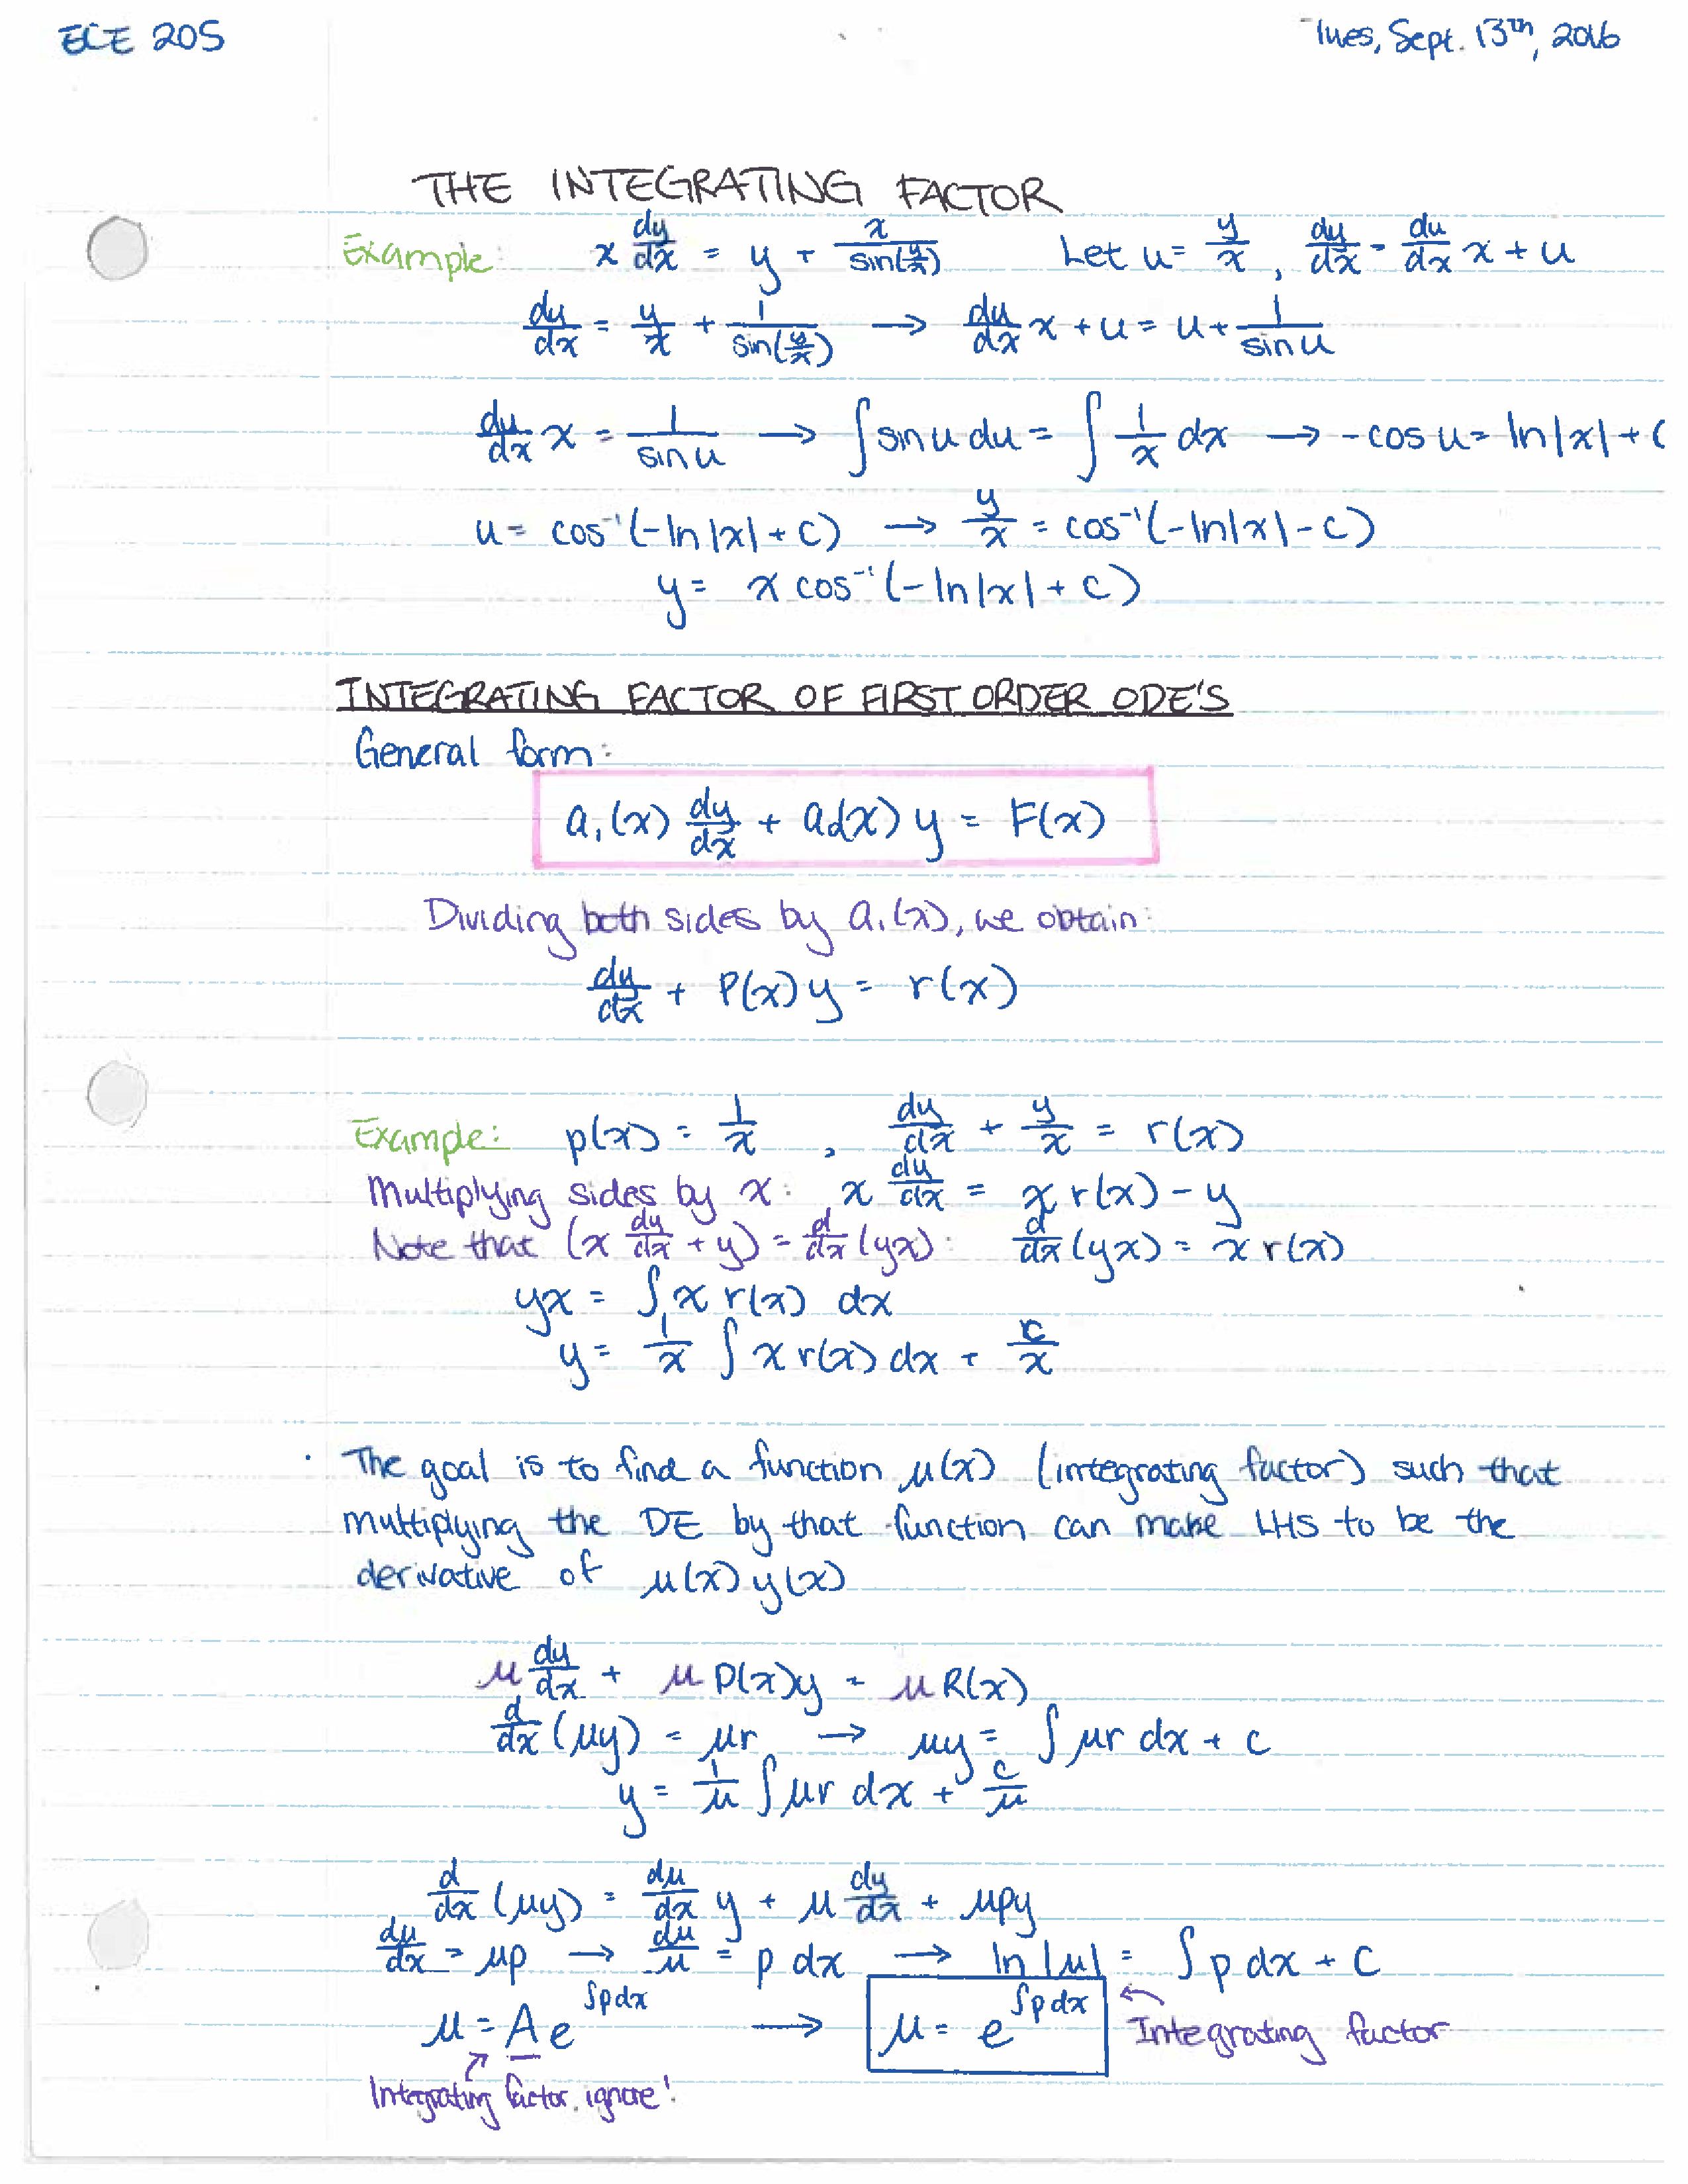 ECE 205
Tues, Sept. 13th, 2016
THE INTEGRATING FACTOR
Example: x dy/dx = y + x/sin(y/x) Let u = y/x , dy/dx = du/dx x + u
dy/dx = y/x + 1/sin(y/x) → du/dx x + u = u + 1/sin u
du/dx x = 1/sin u → ∫ sin u du = ∫ 1/x dx → -cos u = ln|x| + C
u = cos⁻¹(-ln|x| + C) → y/x = cos⁻¹(-ln|x| - C)
y = x cos⁻¹(-ln|x| + C)
INTEGRATING FACTOR OF FIRST ORDER ODE'S
General form:
a₁(x) dy/dx + a₀(x) y = F(x)
Dividing both sides by a₁(x), we obtain:
dy/dx + P(x) y = r(x)
Example: p(x) = 1/x , dy/dx + y/x = r(x)
Multiplying sides by x: x dy/dx = x r(x) - y
Note that (x dy/dx + y) = d/dx (yx): d/dx (yx) = x r(x)
yx = ∫ x r(x) dx
y = 1/x ∫ x r(x) dx + c/x
· The goal is to find a function μ(x) (integrating factor) such that
multiplying the DE by that function can make LHS to be the
derivative of μ(x) y(x)
μ dy/dx + μ P(x) y = μ R(x)
d/dx (μy) = μr → μy = ∫ μr dx + c
y = 1/μ ∫ μr dx + c/μ
d/dx (μy) = dμ/dx y + μ dy/dx + μpy
dμ/dx = μp → dμ/μ = p dx → ln|μ| = ∫ p dx + C
μ = A e^∫pdx → μ = e^∫pdx ← Integrating factor
Integrating factor, ignore!